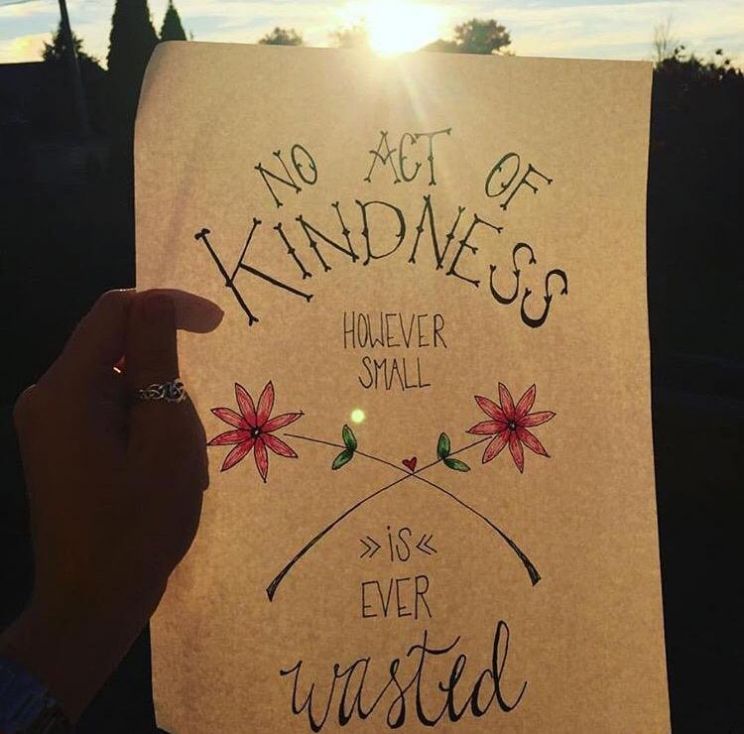 NO ACT OF
KINDNESS
HOWEVER
SMALL
»iS«
EVER
wasted